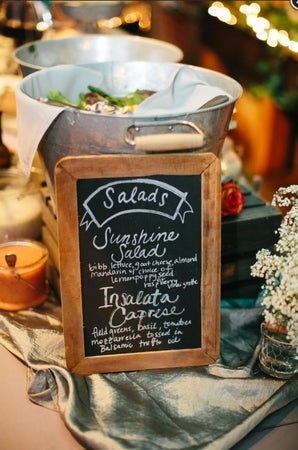 Salads
Sunshine
Salad
bibb lettuce, goat cheese, almond
mandarin & choice of
lemon poppy seed
raspberry
Insalata
Caprese
field greens, basil, tomatoes
mozzarella tossed in
Balsamic truffle oil